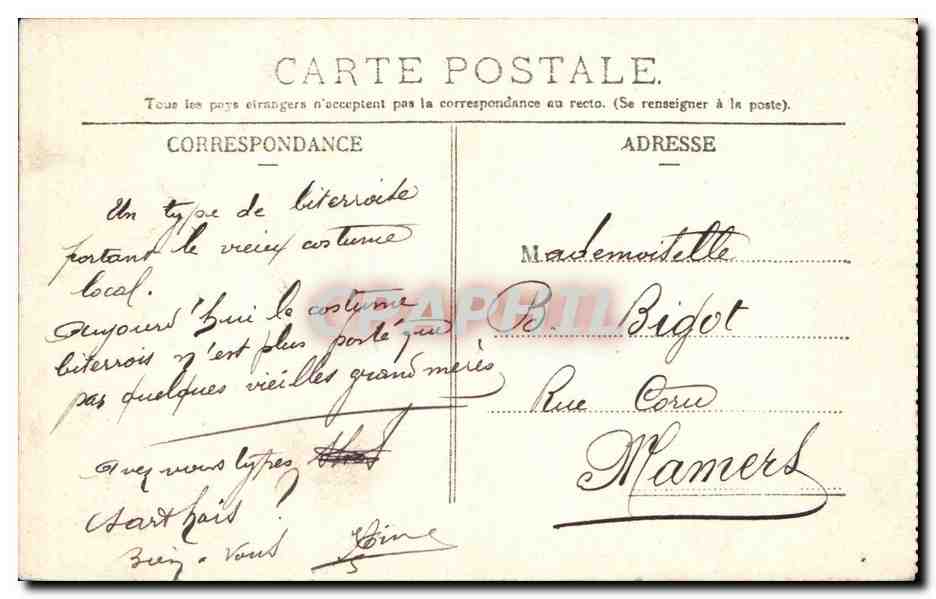 CARTE POSTALE.
Tous les pays étrangers n'acceptent pas la correspondance au recto. (Se renseigner à la poste).
CORRESPONDANCE
Un type de biterroise
portant le vieux costume
local.
Aujourd'hui le costume
biterrois n'est plus porté que
par quelques vieilles grand mères
Avez vous types
sarthois ?
Bien à vous
ADRESSE
Mademoiselle
B. Bigot
Rue Coru
Mamers
CPAPHIL